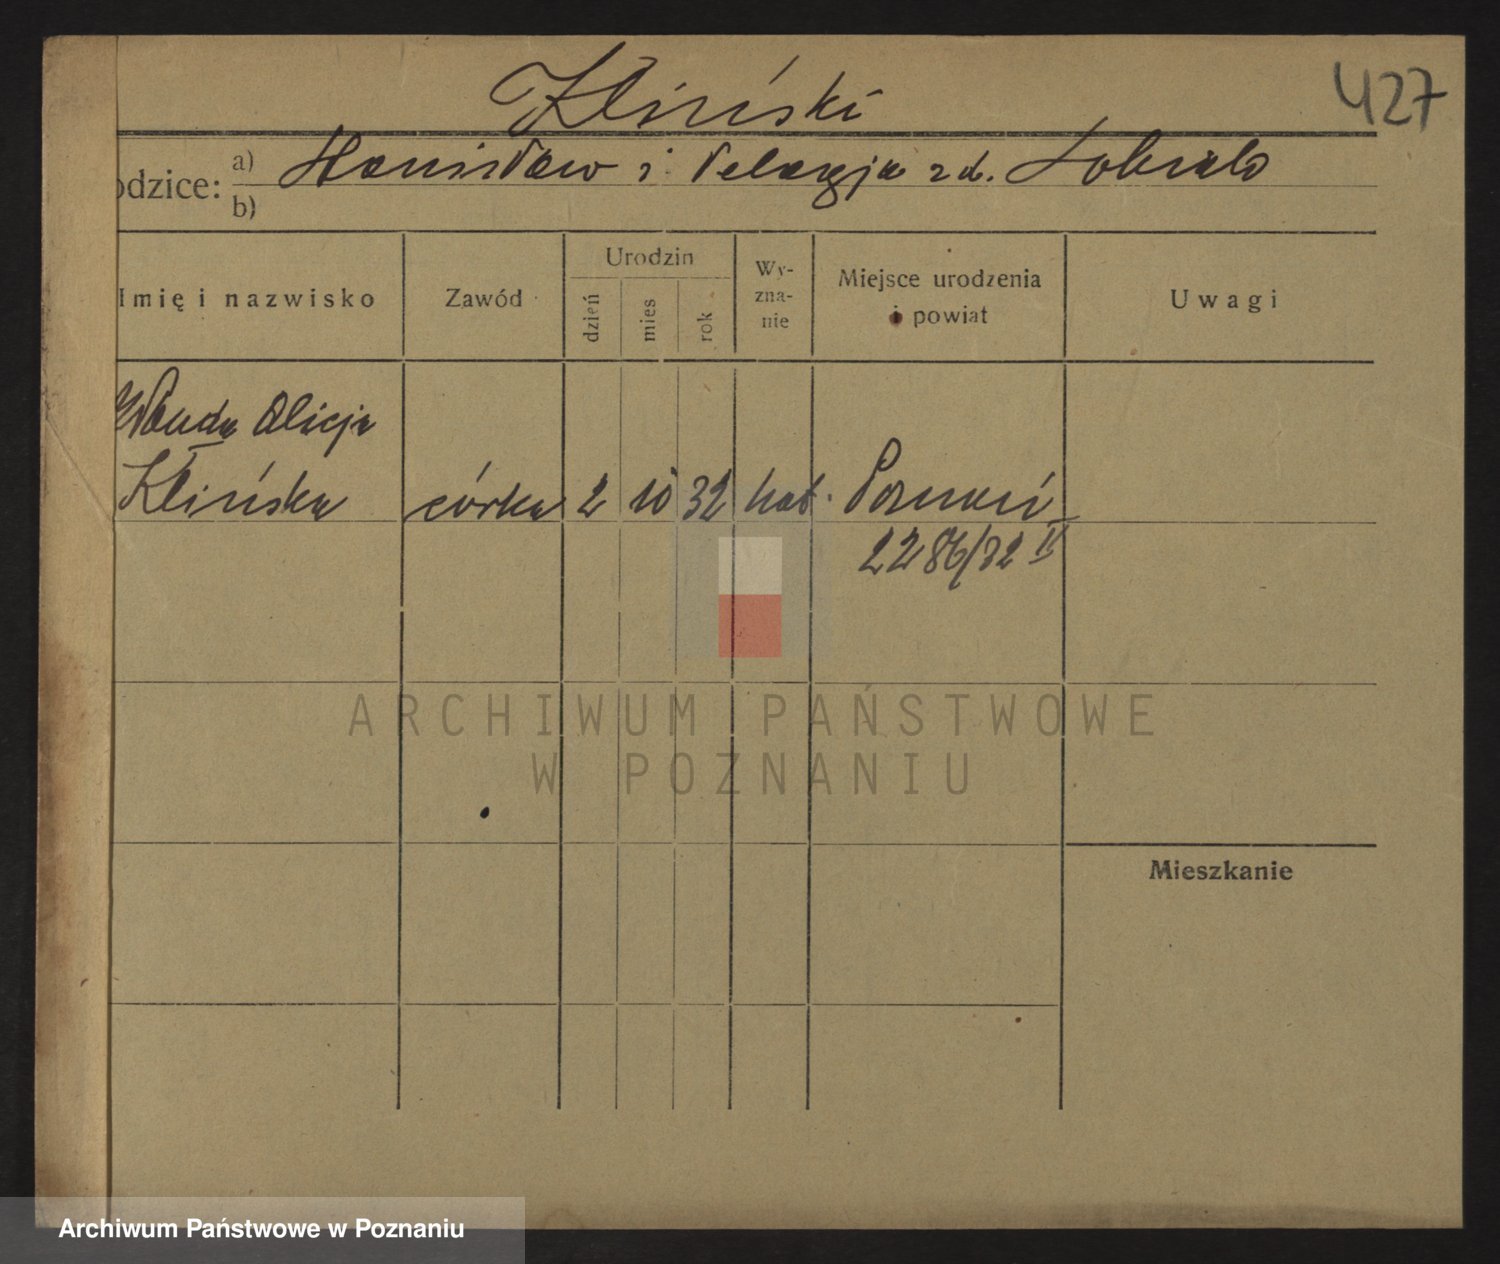 Kliński
427
odzice: a) Stanisław i Pelagja zd.
b)
Imię i nazwisko
Zawód
Urodzin
dzień
mies
rok
Wy-
zna-
nie
Miejsce urodzenia
i powiat
Uwagi
Wanda Alicja
Klińska córka 2 10 32 kat. Poznań
2286/32 II
ARCHIWUM PAŃSTWOWE
W POZNANIU
Mieszkanie
Archiwum Państwowe w Poznaniu